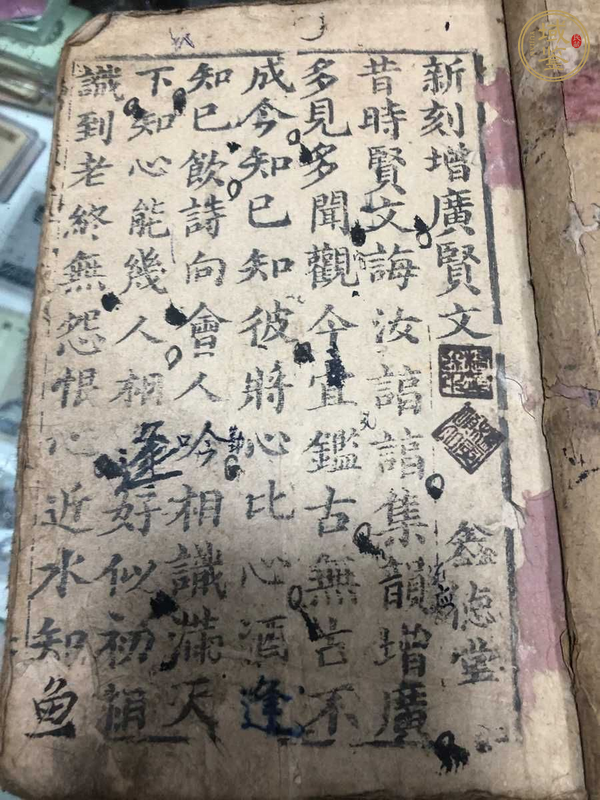 新刻增廣賢文 鑫德堂
昔時賢文誨汝諄諄集韻增廣
多見多聞觀今宜鑑古無古不
成今知已知彼將心比心酒逢
知已飲詩向會人吟相識滿天
下知心能幾人相逢好似初相
識到老終無怨恨心近水知魚